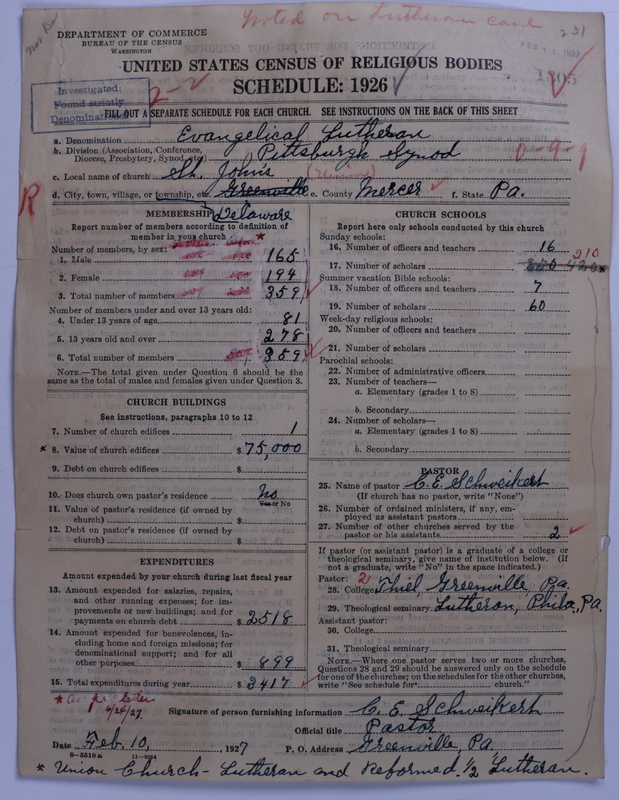 Noted on Lutheran card
231
DEPARTMENT OF COMMERCE
BUREAU OF THE CENSUS
WASHINGTON
UNITED STATES CENSUS OF RELIGIOUS BODIES
SCHEDULE: 1926
Investigated:
Found strictly
Denominational
2-2
FILL OUT A SEPARATE SCHEDULE FOR EACH CHURCH. SEE INSTRUCTIONS ON THE BACK OF THIS SHEET
a. Denomination Evangelical Lutheran
b. Division (Association, Conference, Diocese, Presbytery, Synod, etc.) Pittsburgh Synod
0-9-9
c. Local name of church St. John's
R
d. City, town, village, or township, etc. Greenville e. County Mercer f. State Pa.
Delaware
MEMBERSHIP
Report number of members according to definition of
member in your church
Number of members, by sex:
1. Male 165
2. Female 194
3. Total number of members 359
Number of members under and over 13 years old:
4. Under 13 years of age 81
5. 13 years old and over 278
6. Total number of members 359
NOTE.—The total given under Question 6 should be
the same as the total of males and females given under Question 3.
CHURCH BUILDINGS
See instructions, paragraphs 10 to 12.
7. Number of church edifices 1
* 8. Value of church edifices $ 75,000
9. Debt on church edifices $
10. Does church own pastor's residence No
Yes or No
11. Value of pastor's residence (if owned by
church) $
12. Debt on pastor's residence (if owned by
church) $
EXPENDITURES
Amount expended by your church during last fiscal year
13. Amount expended for salaries, repairs,
and other running expenses; for im-
provements or new buildings; and for
payments on church debt $ 2518
14. Amount expended for benevolences, in-
cluding home and foreign missions; for
denominational support; and for all
other purposes $ 899
15. Total expenditures during year $ 3417
CHURCH SCHOOLS
Report here only schools conducted by this church
Sunday schools:
16. Number of officers and teachers 16
17. Number of scholars 210
Summer vacation Bible schools:
18. Number of officers and teachers 7
19. Number of scholars 60
Week-day religious schools:
20. Number of officers and teachers
21. Number of scholars
Parochial schools:
22. Number of administrative officers
23. Number of teachers—
a. Elementary (grades 1 to 8)
b. Secondary
24. Number of scholars—
a. Elementary (grades 1 to 8)
b. Secondary
PASTOR
25. Name of pastor C. E. Schweikert
(If church has no pastor, write "None")
26. Number of ordained ministers, if any, em-
ployed as assistant pastors
27. Number of other churches served by the
pastor or his assistants 2
If pastor (or assistant pastor) is a graduate of a college or
theological seminary, give name of institution below. (If
not a graduate, write "No" in the space indicated.)
Pastor: 2
28. College Thiel, Greenville, Pa.
29. Theological seminary Lutheran, Phila., Pa.
Assistant pastor:
30. College
31. Theological seminary
NOTE.—Where one pastor serves two or more churches,
Questions 28 and 29 should be answered only on the schedule
for one of the churches; on the schedules for the other churches,
write "See schedule for church."
* as per letter
6/24/27
Signature of person furnishing information C. E. Schweikert
Official title Pastor
Date Feb. 10, 1927 P. O. Address Greenville, Pa.
8-5518a 11-9064
* Union Church - Lutheran and Reformed. 1/2 Lutheran.